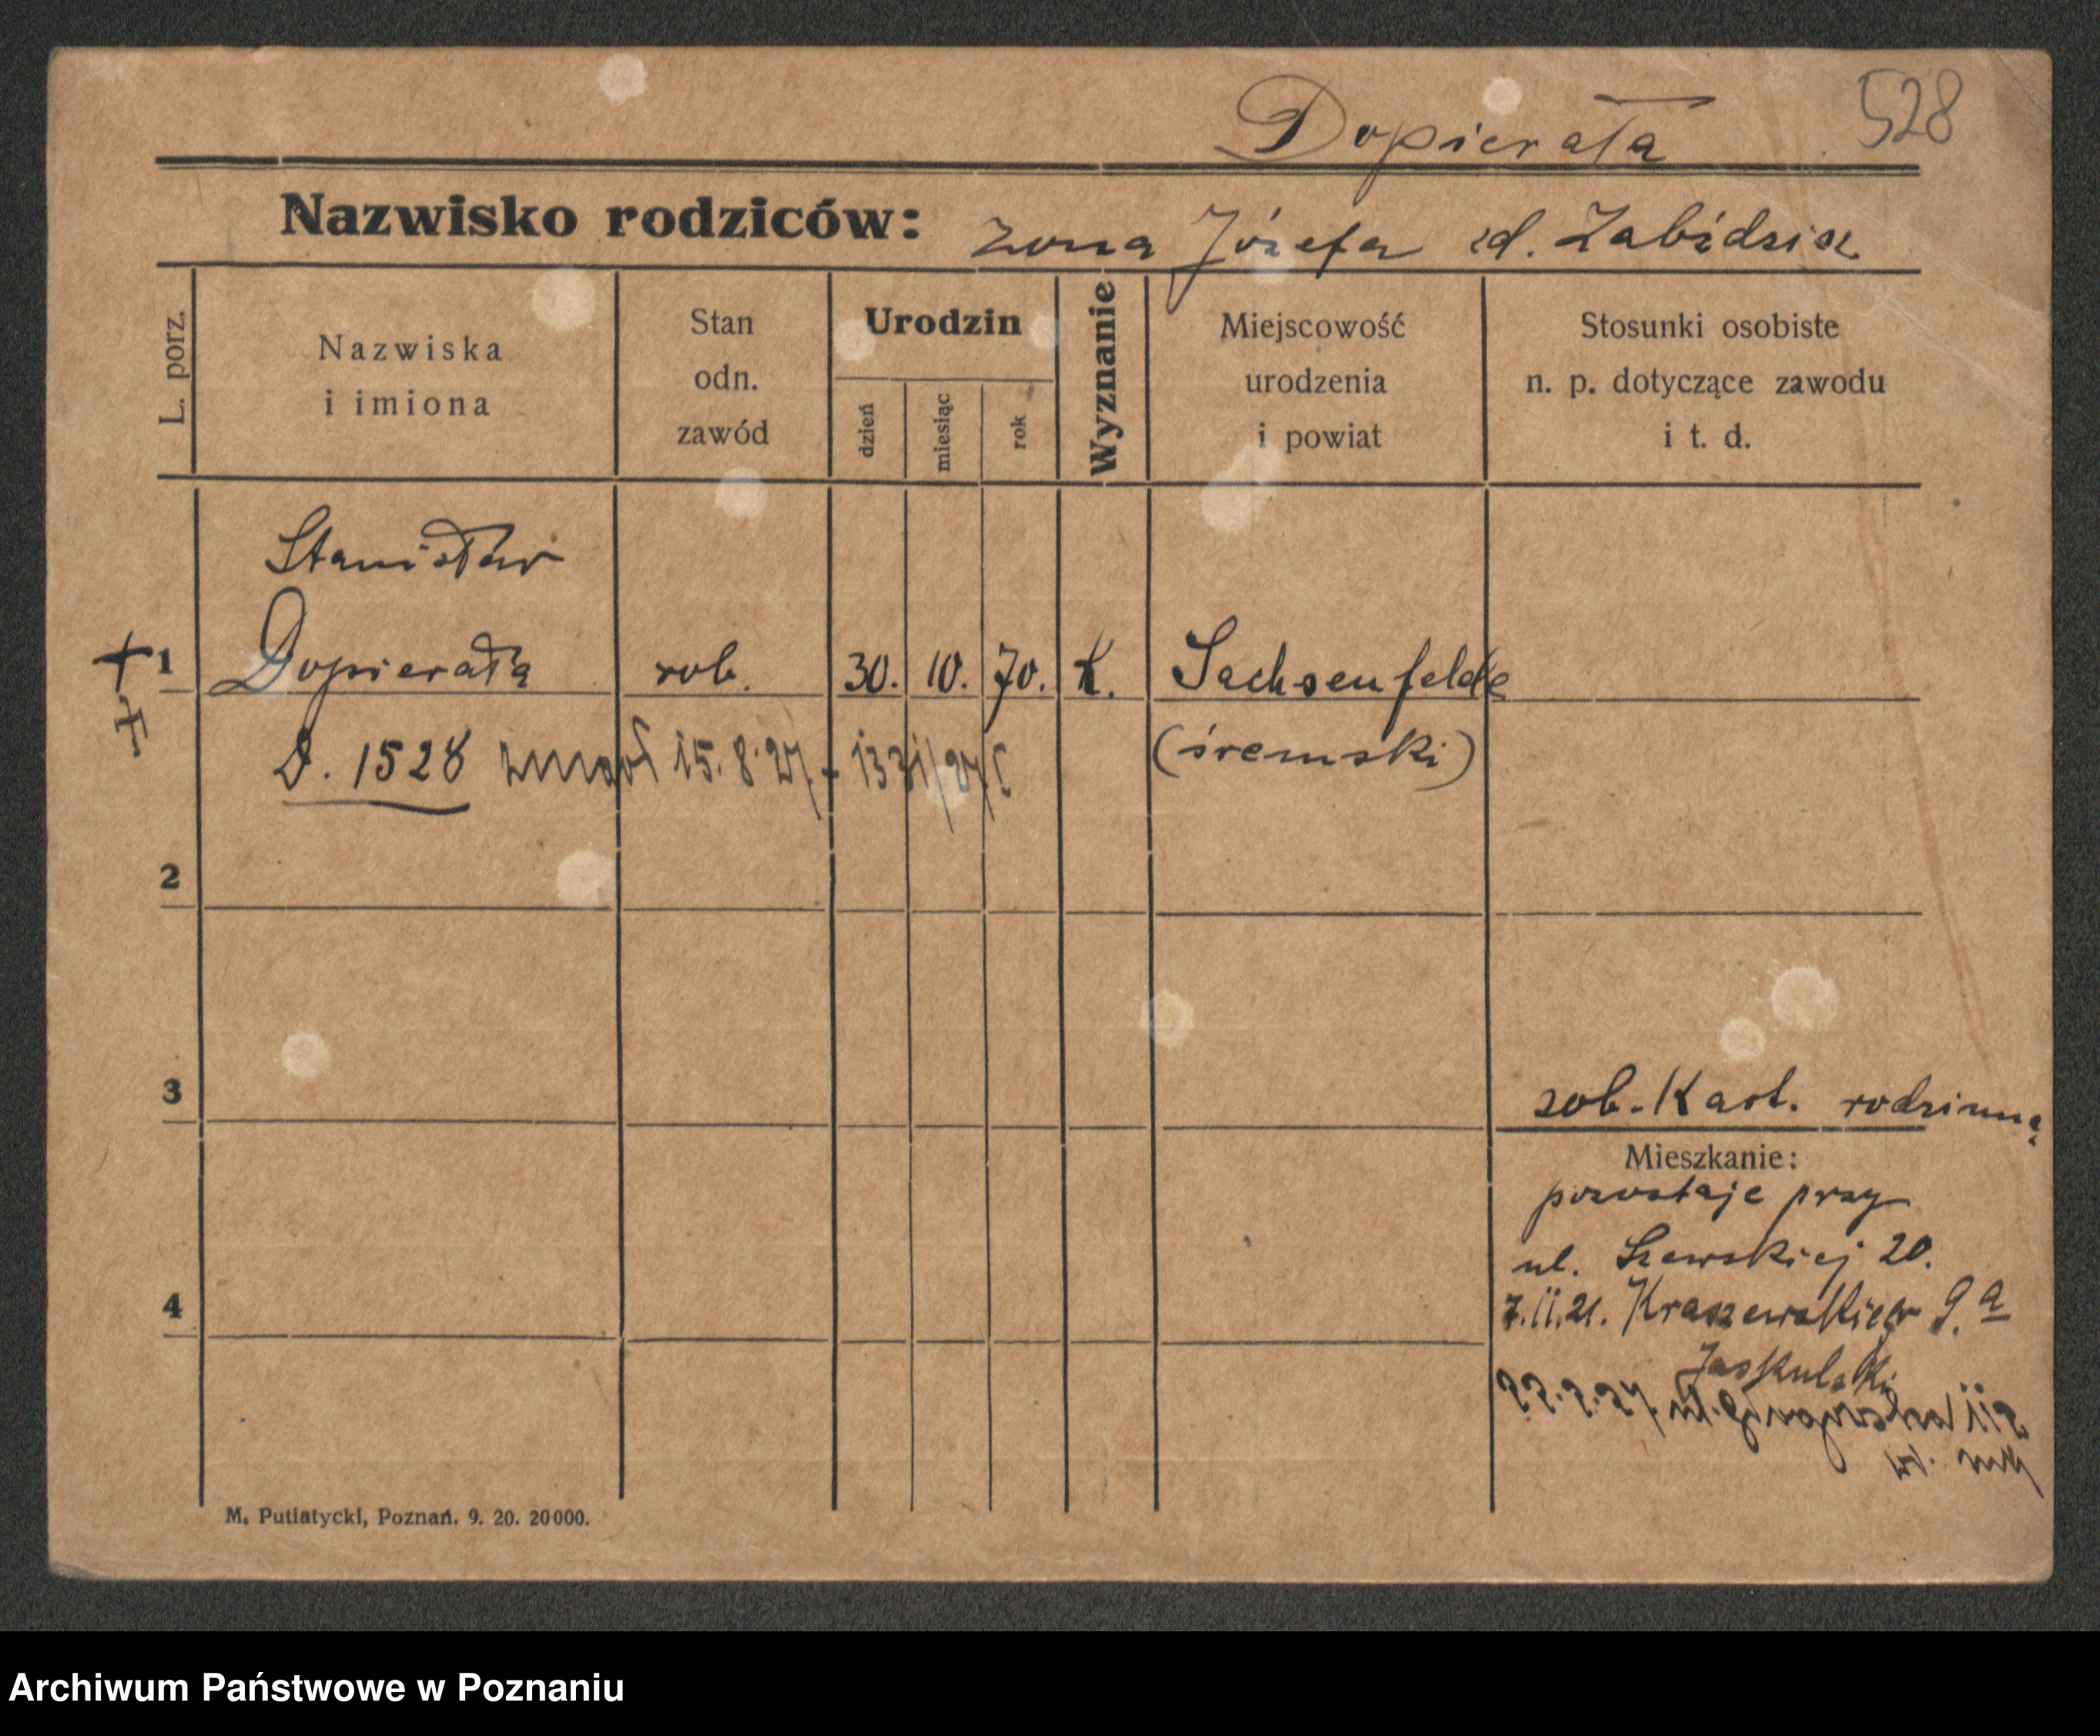 528
Dopierała
Nazwisko rodziców: żona Józefa zd.
L. porz.
Nazwiska
i imiona
Stan
odn.
zawód
Urodzin
dzień
miesiąc
rok
Wyznanie
Miejscowość
urodzenia
i powiat
Stosunki osobiste
n. p. dotyczące zawodu
i t. d.
Stanisław
1 Dopierała rob. 30. 10. 70. K. Sachsenfelde
D. 1528 zmarł 15.8.27. - 1331/27
(śremski)
2
3
zob. Kart. rodzinną
Mieszkanie:
pozostaje przy
ul. Szewskiej 20.
4
7.II.21. Kraszewskiego 9.a
Jaskulski
ul.
M. Putiatycki, Poznań. 9. 20. 20000.
Archiwum Państwowe w Poznaniu